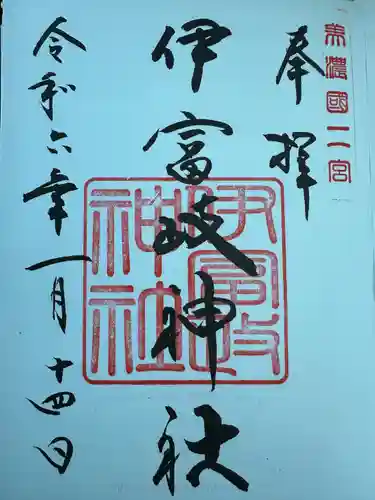 美濃國二宮
奉拝
伊富岐神社
伊富岐
神社
令和六年一月十四日